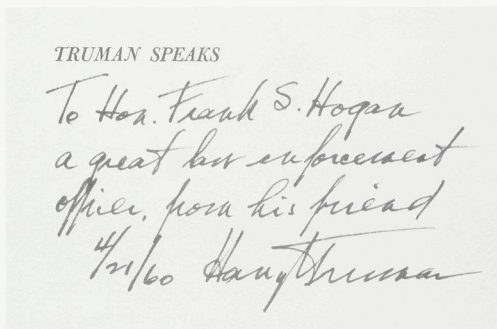 TRUMAN SPEAKS
To Hon. Frank S. Hogan
a great law enforcement
officer, from his friend
4/21/60 Harry Truman